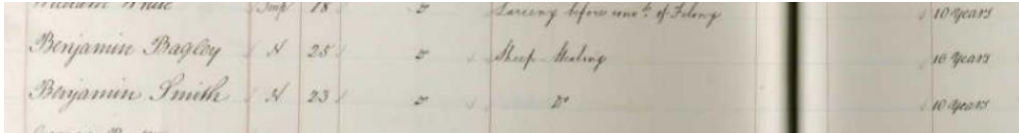 William White Imp 18 Do Larceny before convd. of Felony 10 Years
Benjamin Bagley N 25 Do Sheep Stealing 10 Years
Benjamin Smith N 23 Do Do 10 Years